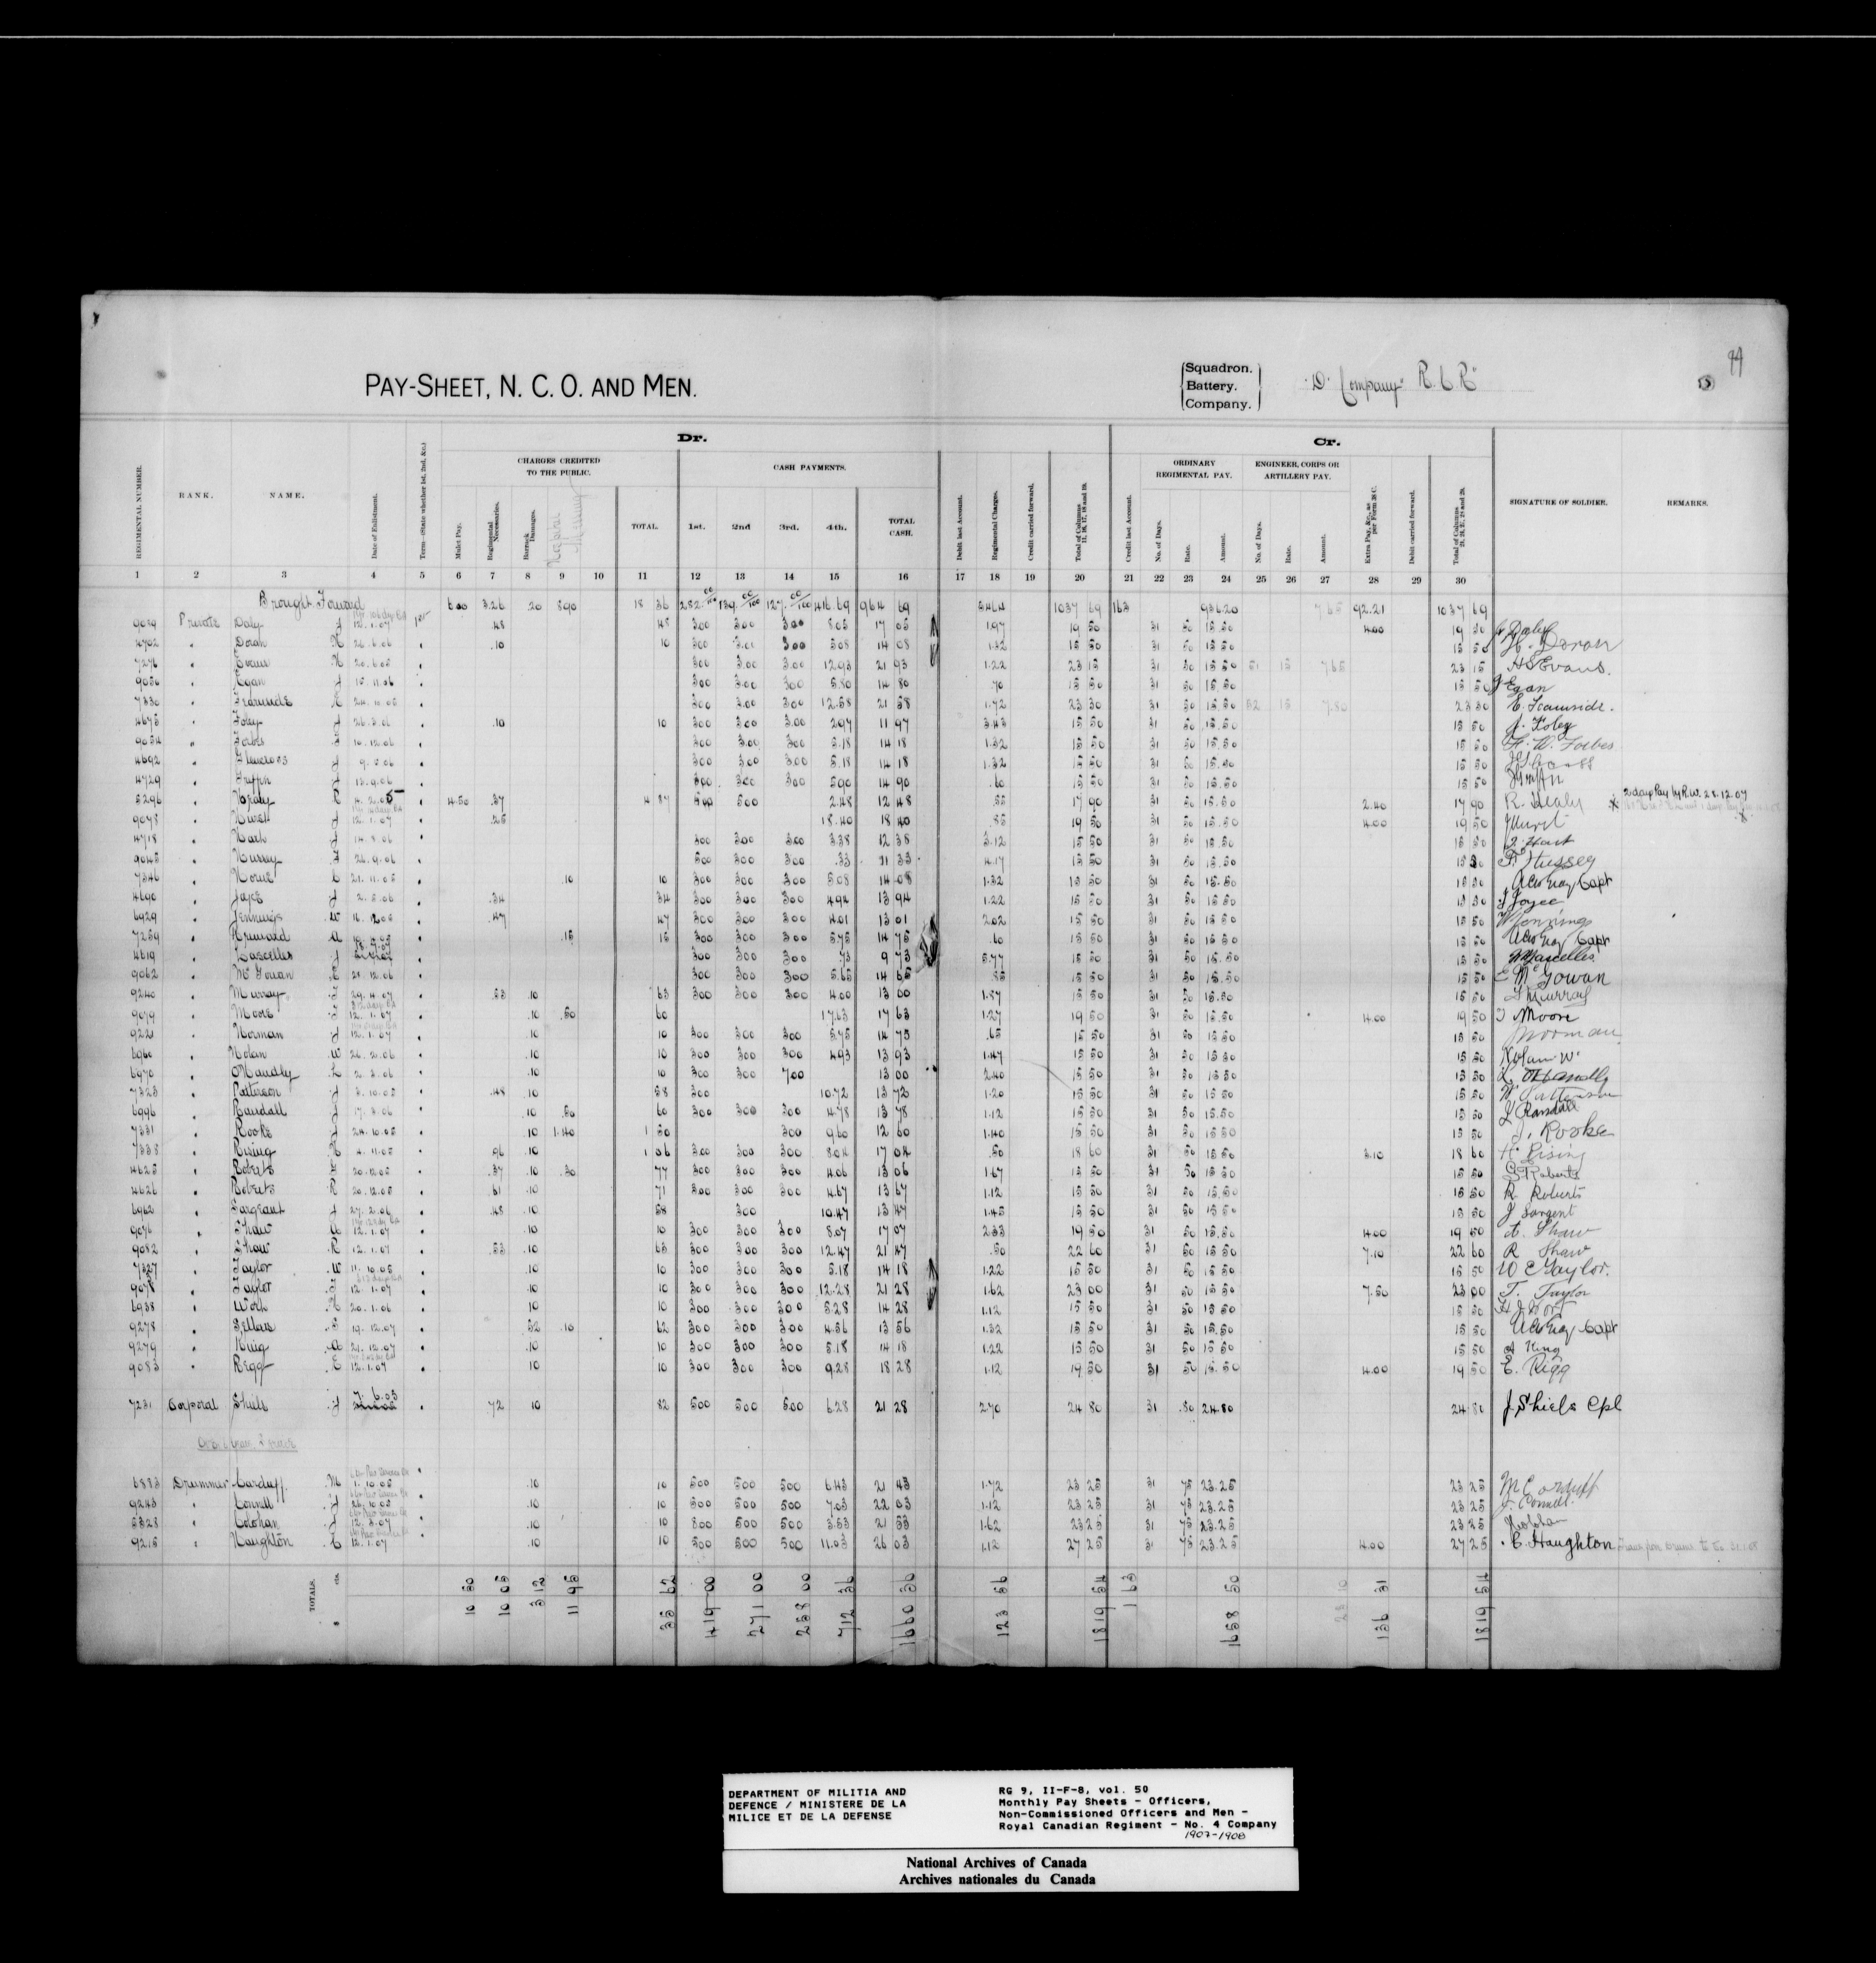 PAY-SHEET, N. C. O. AND MEN.
Squadron.
Battery.
Company.
"D" Company R.C.R
Dr.
Cr.
CHARGES CREDITED TO THE PUBLIC.
CASH PAYMENTS.
ORDINARY REGIMENTAL PAY.
ENGINEER, CORPS OR ARTILLERY PAY.
REGIMENTAL NUMBER. RANK. NAME. Date of Enlistment. Term—(State whether 1st, 2nd, &c.) Mulct Pay. Regimental Necessaries. Barrack Damages. TOTAL. 1st. 2nd 3rd. 4th. TOTAL CASH. Debit last Account. Regimental Charges. Credit carried forward. Total of Columns 11, 16, 17, 18 and 19. Credit last Account. No. of Days. Rate. Amount. No. of Days. Rate. Amount. Extra Pay, &c., as per Form 38 C. Debit carried forward. Total of Columns 21, 24, 27, 28 and 29. SIGNATURE OF SOLDIER. REMARKS.
1 2 3 4 5 6 7 8 9 10 11 12 13 14 15 16 17 18 19 20 21 22 23 24 25 26 27 28 29 30
Brought Forward 6 00 3.26 .20 8 90 18 36 282.00/100 139.00/100 127.00/100 416.69 964 69 1037 69 1 63 936.20 7 65 92.21 1037 69
Private Daly J 12.1.07 .48 48 300 300 300 8.05 17 05 1.97 19 50 31 50 15.50 4.00 19 50 J Daly
4702 " Doran H 26.6.06 .10 10 300 3.00 300 5.08 14 08 1.32 15 50 31 50 15 50 15 50 H. Doran
7276 " Evans H 20.6.05 300 3.00 3.00 12.93 21 93 1.22 23 15 31 50 15 50 51 15 7.65 23 15 H S Evans.
9056 " Egan J 15.11.06 300 3.00 300 5.80 14 80 .70 15 50 31 50 15.50 15 50 J Egan
7330 " E 24.10.05 300 3.00 300 12.58 21 58 1.72 23 30 31 50 15.50 52 15 7.80 23 30
4675 " Foley J 26.3.06 .10 10 300 300 3.00 2.97 11 97 3.43 15 50 31 50 15.50 15 50 J. Foley
9054 " Forbes F 10.12.06 300 3.00 300 5.18 14 18 1.32 15 50 31 50 15.50 15 50 F. W. Forbes
4692 " J 9.5.06 300 300 300 5.18 14 18 1.32 15 50 31 50 15.50 15 50
4729 " Griffin J 13.9.06 300 300 300 5.90 14 90 .60 15 50 31 50 15.50 15 50
5296 " Healy R 4.2.05 4.50 .37 4 87 500 500 2.48 12 48 .55 17 90 31 50 15.50 2.40 17 90 R. Healy 2 days Pay by R.W. 28.12.07
9073 " Hurst J 12.1.07 .25 18.40 18 40 .85 19 50 31 50 15.50 4.00 19 50 J Hurst
4718 " Hart J 14.8.06 300 300 300 3.38 12 38 3.12 15 50 31 50 15.50 15 50 J. Hart
9045 " Hussey F 26.9.06 500 300 300 .33 11 33 4.17 15 50 31 50 15.50 15 50 F. Hussey
7346 " Howe C 21.11.05 .10 10 300 300 300 5.08 14 08 1.32 15 50 31 50 15.50 15 50 Capt
4690 " Joyce J 2.5.06 .34 34 300 300 300 4.94 13 94 1.22 15 50 31 50 15 50 15 50 J Joyce
6929 " Jennings W .47 47 300 300 300 4.01 13 01 2.02 15 50 31 50 15 50 15 50 W Jennings
7259 " A .15 15 300 300 300 5.75 14 75 .60 15 50 31 50 15 50 15 50 Capt
4619 " Lascelles J 300 300 300 .73 9 73 5.77 15 50 31 50 15.50 15 50 Lascelles
9062 " McGowan E 21.12.06 300 300 300 5.65 14 65 .85 15 50 31 50 15.50 15 50 E McGowan
9240 " Murray T 29.4.07 .53 .10 63 300 300 300 4.00 13 00 1.87 15 50 31 50 15.50 15 50 T Murray
9079 " Moore T 12.1.07 .10 .50 60 17.63 17 63 1.27 19 50 31 50 15.50 4.00 19 50 T Moore
9221 " Norman J 12.1.07 .10 10 300 300 300 5.75 14 75 .65 15 50 31 50 15 50 15 50 J Norman
6960 " Nolan W 26.2.06 .10 10 300 300 300 4.93 13 93 1.47 15 50 31 50 15 50 15 50 Nolan W.
6970 " OHandly L 2.3.06 .10 10 300 300 700 13 00 2.40 15 50 31 50 15 50 15 50 L OHandly
7323 " Patterson J 3.10.05 .48 .10 58 300 10.72 13 72 1.20 15 50 31 50 15 50 15 50 Patterson
6996 " Randall J 17.3.06 .10 .50 60 300 300 300 4.78 13 78 1.12 15 50 31 50 15.50 15 50 J Randall
7331 " Rooke J 24.10.05 .10 1.40 1 50 300 9.60 12 60 1.40 15 50 31 50 15 50 15 50 J. Rooke
7338 " Rising H 4.11.05 .96 .10 1 06 300 300 300 8.04 17 04 .50 18 60 31 50 15 50 3.10 18 60 H Rising
4625 " Roberts G 20.12.05 .37 .10 .30 77 300 300 300 4.06 13 06 1.67 15 50 31 50 15 50 15 50 G. Roberts
4626 " Roberts R 20.12.05 .61 .10 71 300 300 300 4.67 13 67 1.12 15 50 31 50 15.50 15 50 R Roberts
6962 " Sargeant J 27.2.06 .48 .10 58 300 10.47 13 47 1.45 15 50 31 50 15 50 15 50 J Sargent
9076 " Shaw A 12.1.07 .10 10 300 300 300 8.07 17 07 2.33 19 50 31 50 15.50 4.00 19 50 A. Shaw
9082 " Shaw R 12.1.07 .53 .10 63 300 300 300 12.47 21 47 .50 22 60 31 50 15 50 7.10 22 60 R Shaw
7327 " Taylor W 11.10.05 .10 10 300 300 300 5.18 14 18 1.22 15 50 31 50 15 50 15 50 W E Taylor.
9078 " Taylor T 12.1.07 .10 10 300 300 300 12.28 21 28 1.62 23 00 31 50 15 50 7.50 23 00 T. Taylor
6938 " H 20.1.06 10 10 300 300 300 5.28 14 28 1.12 15 50 31 50 15 50 15 50
9278 " Sellars S 19.12.07 .52 .10 62 300 300 300 4.56 13 56 1.32 15 50 31 50 15.50 15 50 Capt
9279 " King A 21.12.07 .10 10 300 300 300 5.18 14 18 1.22 15 50 31 50 15 50 15 50 A King
9083 " Rigg E 12.1.07 10 10 300 300 300 9.28 18 28 1.12 19 50 31 50 15.50 4.00 19 50 E. Rigg
7231 Corporal Shiels J 7.6.03 72 10 82 500 500 500 6.28 21 28 2.70 24 80 31 .80 24.80 24 80 J. Shiels Cpl
6883 Drummer Carduff M 1.10.05 .10 10 500 500 500 6.43 21 43 1.72 23 25 31 75 23.25 23 25 M Carduff
9243 " Connell J 26.10.05 .10 10 500 500 500 7.03 22 03 1.12 23 25 31 75 23.25 23 25 J. Connell.
5328 " Colohan J 12.3.07 .10 10 800 500 500 3.53 21 53 1.62 23 25 31 75 23.25 23 25
9215 " Haughton C 12.1.07 .10 10 500 500 500 11.03 26 03 1.12 27 25 31 75 23.25 4.00 27 25 C. Haughton
TOTALS. $ cts. 10 50 10 05 3 12 11 95 35 62 419 00 271 00 258 00 712 36 1660 36 123 56 1819 54 1 63 1658 50 23 10 136 31 1819 54
DEPARTMENT OF MILITIA AND
DEFENCE / MINISTERE DE LA
MILICE ET DE LA DEFENSE
RG 9, II-F-8, vol. 50
Monthly Pay Sheets - Officers,
Non-Commissioned Officers and Men -
Royal Canadian Regiment - No. 4 Company
1907-1908
National Archives of Canada
Archives nationales du Canada